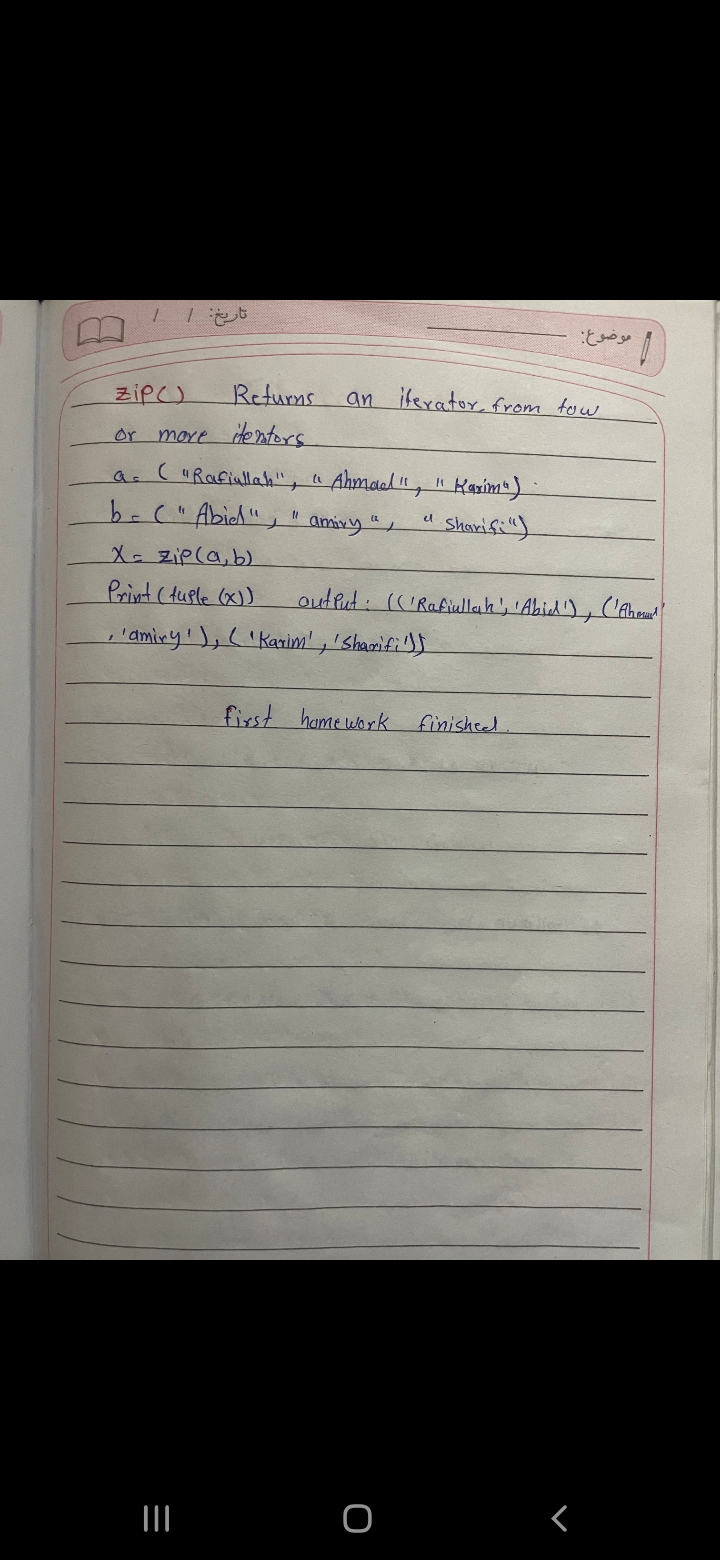 تاریخ: / /
موضوع:
zip() Returns an iterator from tow
or more itentors
a = ("Rafiullah", "Ahmad", "Karim")
b = ("Abid", "amiry", "Sharifi")
X = zip(a,b)
Print(tuple (x)) output: (('Rafiullah', 'Abid'), ('Ahmad'
, 'amiry'), ('Karim', 'Sharifi'))
first homework finished.